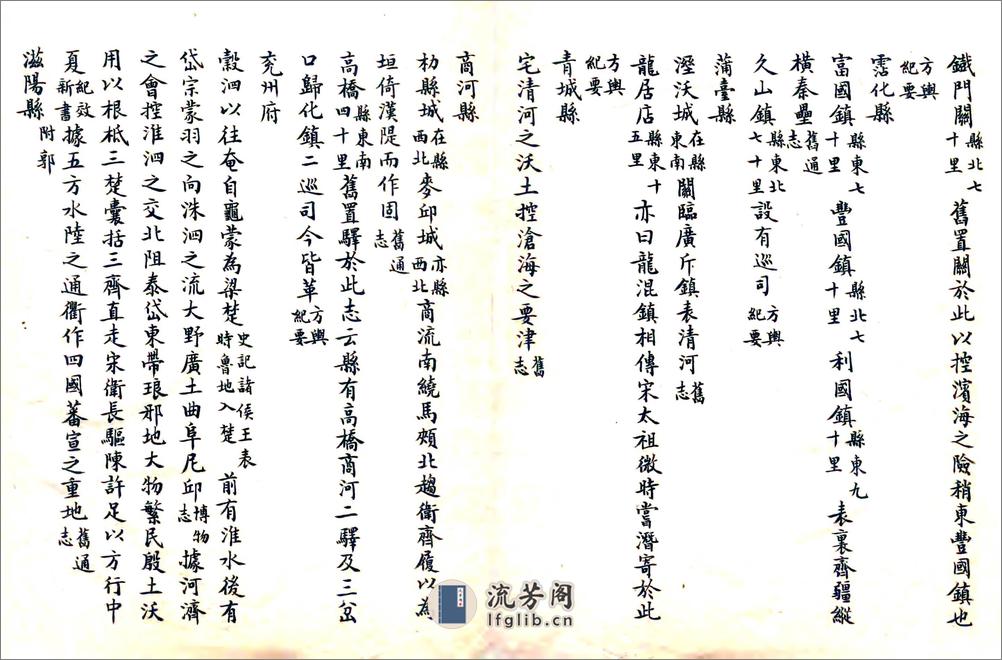 鐵門關縣北七十里舊置關於此以控濱海之險稍東豐國鎮也
方輿紀要
霑化縣
富國鎮縣東七十里豐國鎮縣北七十里利國鎮縣東九十里表裏齊疆縱
橫秦壘舊通志
久山鎮縣東北七十里設有巡司方輿紀要
蒲臺縣
溼沃城在縣東南關臨廣斥鎮表清河舊志
龍居店縣東十五里亦曰龍混鎮相傳宋太祖微時嘗潛寄於此
方輿紀要
青城縣
宅清河之沃土控滄海之要津舊志
商河縣
朸縣城在縣西北麥邱城亦縣西北商流南繞馬頰北趨衛齊履以為
垣倚漢隄而作固舊通志
高橋縣東南四十里舊置驛於此志云縣有高橋商河二驛及三岔
口歸化鎮二巡司今皆革方輿紀要
兖州府
穀泗以往奄自龜蒙為梁楚史記諸侯王表時魯地入楚前有淮水後有
岱宗蒙羽之向洙泗之流大野廣土曲阜尼邱博物志據河濟
之會控淮泗之交北阻泰岱東帶琅邪地大物繁民殷土沃
用以根柢三楚囊括三齊直走宋衛長驅陳許足以方行中
夏紀效新書據五方水陸之通衢作四國蕃宣之重地舊通志
滋陽縣附郭
流芳阁
lfglib.cn